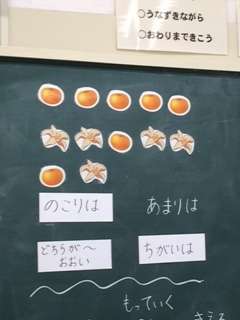 ○うなずきながら
○おわりまできこう
のこりは
あまりは
どちらが〜
おおい
ちがいは
もっていく